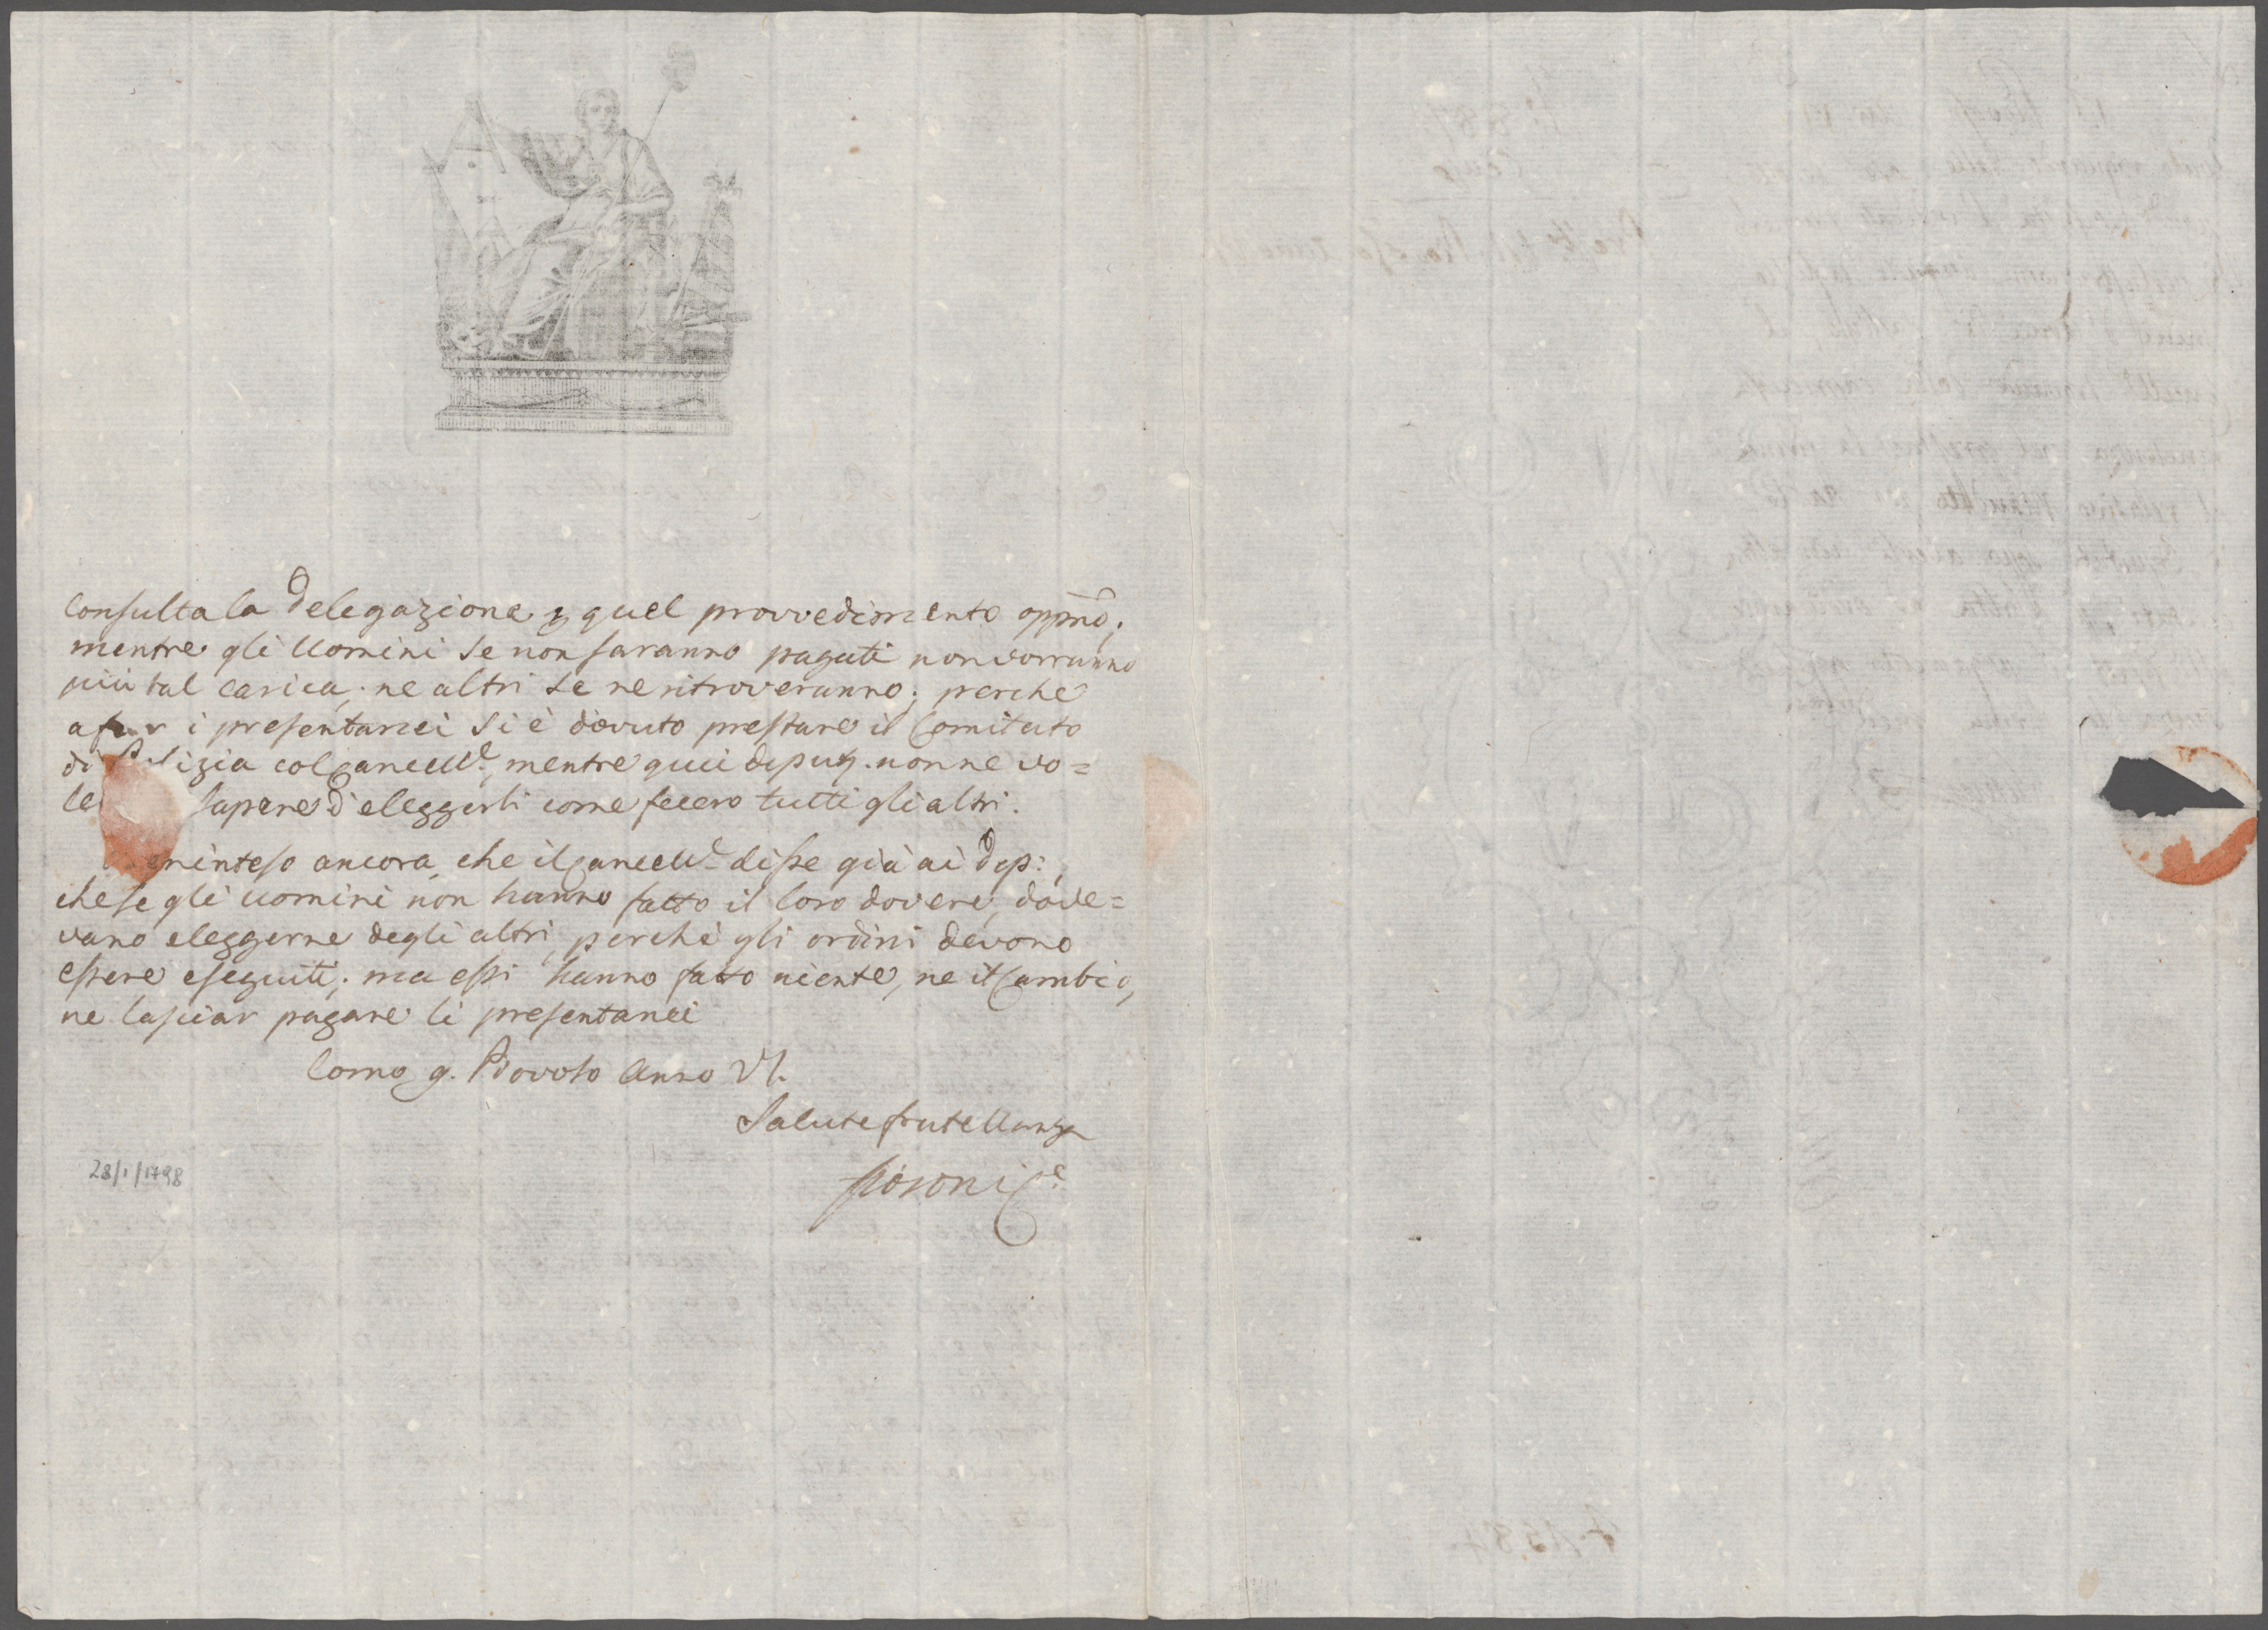 Consulta la Delegazione p quel provvedimento oppnõ;
mentre gli Uomini se non saranno pagati non vorranno
più tal carica, ne altri se ne ritroveranno; perche
a far i presentanei si è dovuto prestare il Comitato
di Polizia col Cancell.e, mentre quei deput. non ne vo=
le sapere d'eleggerli come fecero tutti gli altri.
inteso ancora, che il Cancell.e disse già ai Dep:,
che se gli uomini non hanno fatto il loro dovere, dove=
vano eleggerne degli altri, perchè gli ordini devono
essere eseguiti; ma essi hanno fatto niente, ne il Cambio,
ne lasciar pagare li presentanei
Como 9. Piovoso Anno VI.
Salute fratellanza
28/1/1798